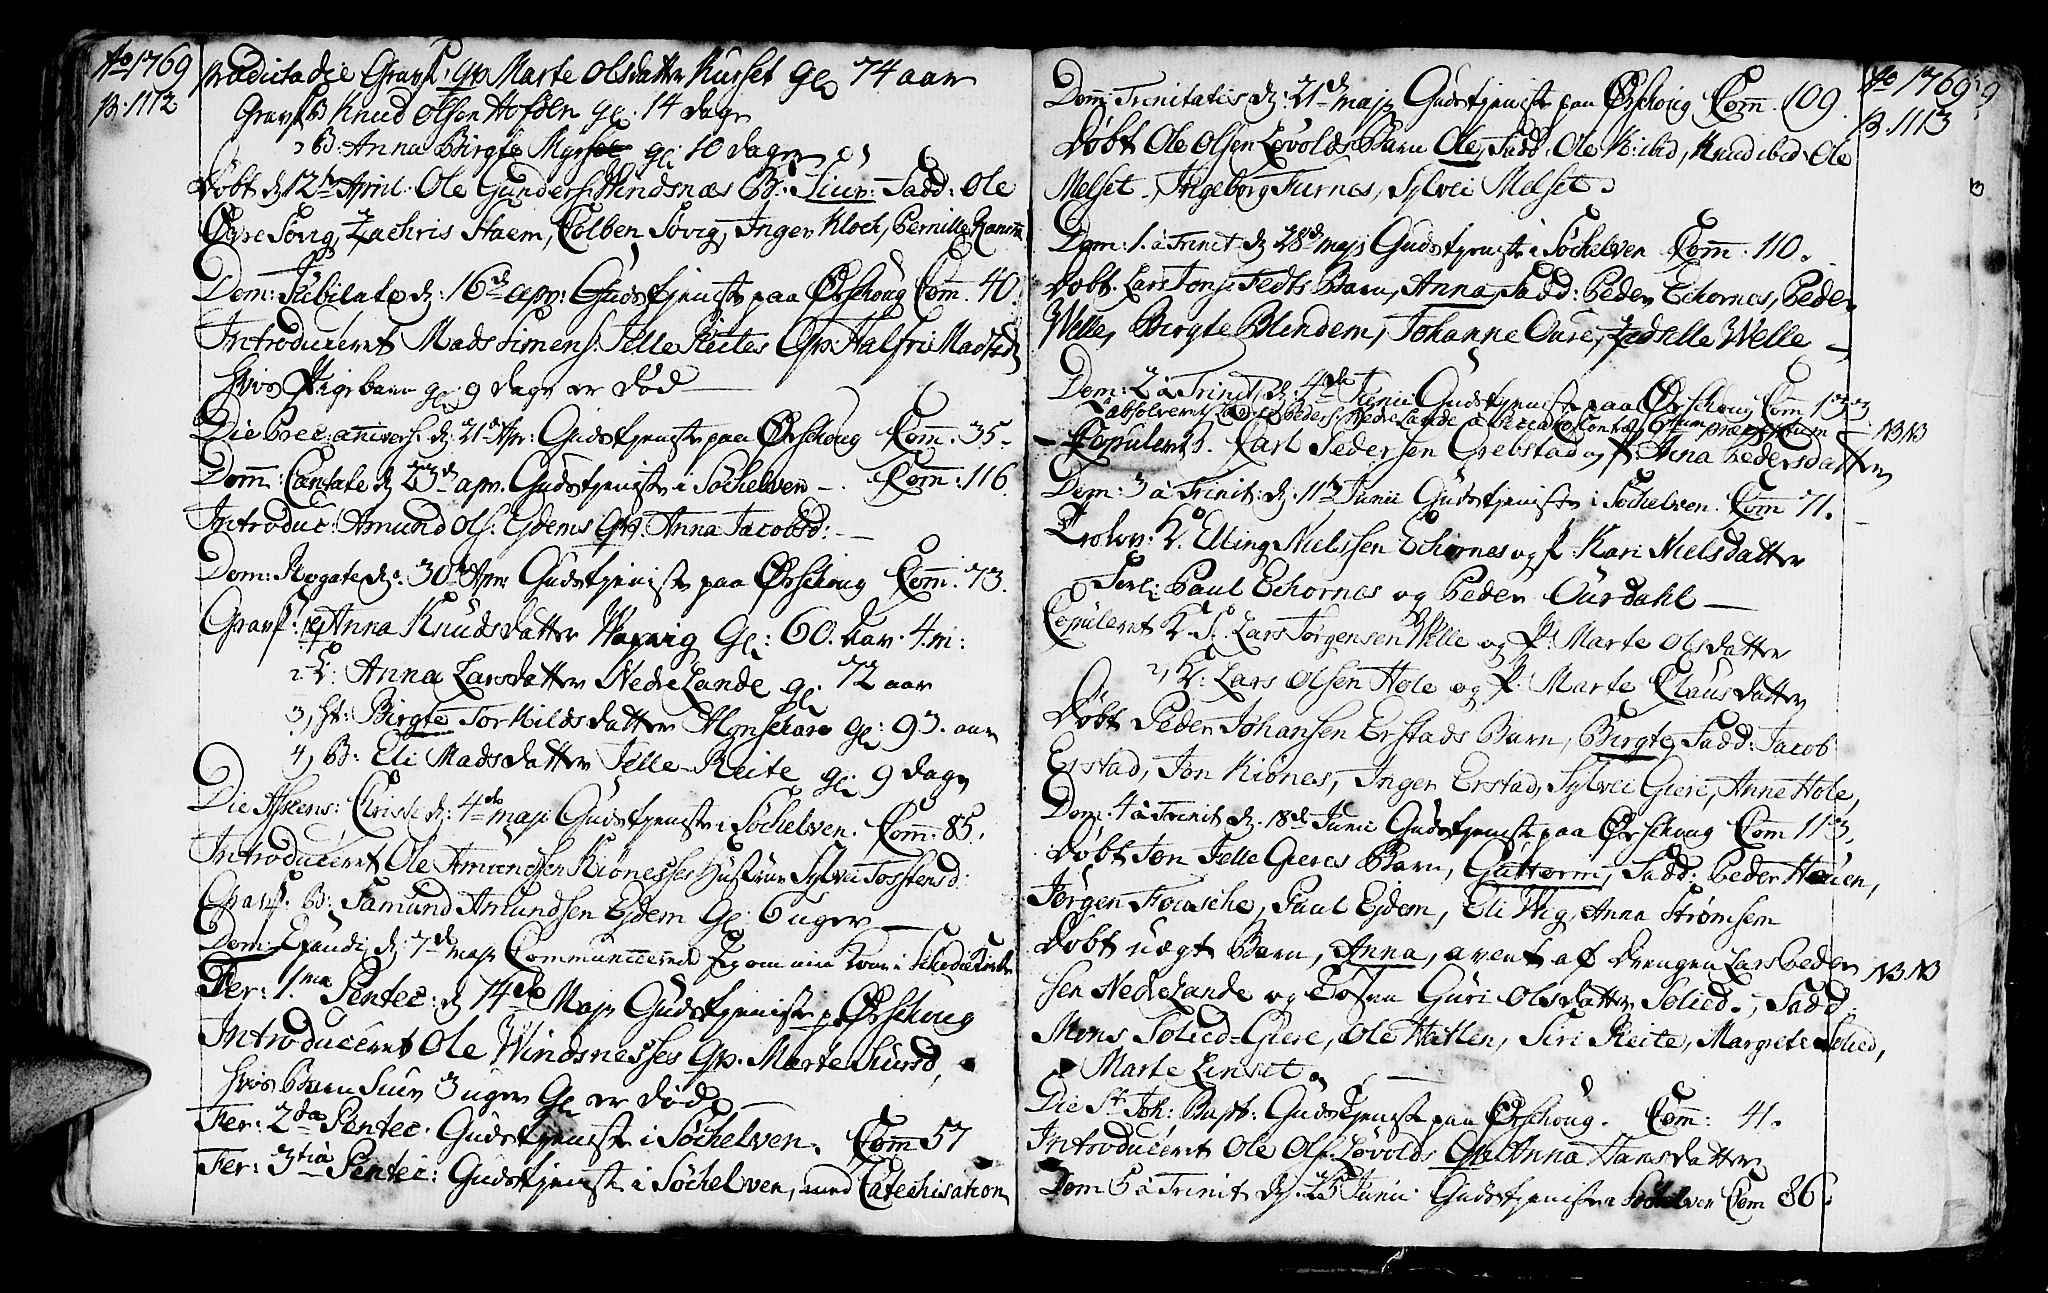 Ao 1769
B: 1112
prædicta die Gravf: qv Marte Olsdatter Kurset gl 74 aar
Gravf B Knud Olsen Hofden gl. 14 dage
2 B: Anna Birgte Myrset gl: 10 dage
Døbt d 12te April. Ole Gunders: Windsnæs B: Siur: Fadd: Ole
Søvig, Zachris Haem, Colben Søvig, Inger Kloch, Pernille
Dom: Jubilate d: 16de apr: Gudstjeniste paa Ørschoug Com. 40
Introduceret Mads Simens: Jelle Reites Qv: Halfri Madsd
hvis Pigebarn gl 9 dage er død
Die Prec: anivers: d: 21de Apr: Gudstjeniste paa Ørschoug Com. 35.
Dom: Cantate d 23de apr. Gudstjeniste i Søchelven Com: 116.
Introduc: Amund Ols: Eidems Qv: Anna Jacobsd:
Dom: Rogate d: 30te Apr: Gudstjeniste paa Ørschoug Com. 73.
Gravf: Anna Knudsdatter Wagvig Gl: 60. aar. 4. m:
2. L: Anna Larsdatter Nedre Lande gl. 72 aar
3, St: Birgte Torkildsdatter gl: 93. aar
4, B: Eli Madsdatter Jelle-Reite gl: 9 dage
Die Ascens: Christi d: 4de maji Gudstjeniste i Søchelven. Com: 85.
Introduceret Ole Amundsen Kiønesses Hustrue Sylvei Tostensd:
Gravf. B: Samund Amundsen Eidem Gl: 6 uger
Dom: Exaudi d: 7de maji Communicerede Jeg om min Kone i
Fer: 1ma Pentec: d 14de Maji Gudstjeniste p: Ørschoug
Introduceret Ole Windsnesses Qv. Marte Siursd,
hvis Barn Siur 3 uger Gl er død.
Fer: 2da Pentec. Gudstjeniste i Søchelven. Com 57
Fer: 3tia Pentec: Gudstjeniste i Søchelven, med Catechisation
Ao 1769
B. 1113
Dom: Trinitatis d: 21de maji Gudstjeniste paa Ørschoug Com. 109.
Døbt Ole Olsen Løvolds Barn Ole, Fadd: Ole ibid, Knud ibid. Ole
Melset, Ingeborg Furnes, Sylvei Melset.
Dom: 1. a Trinit d 28de maji Gudstjeniste i Søchelven Com: 110.
Døbt. Lars Jons: Fedts Barn, Anna, Fadd: Peder Echornes, Peder
Welle, Birgte Blindem, Johanne Oure, Welle
Dom: 2 a Trinit, d: 4de Junii Gudstjeniste paa Ørschoug Com
Absolveret Lars Peders: Nedre Lande
Copuleret S. Carl Pedersen Grebstad og P: Anna Pedersdatter
NB NB
Dom: 3 a Trinit: d: 11te Junii Gudstjeniste i Søchelven. Com 71.
Trolov: K. Elling Nielssen Echornes og P: Kari Nielsdatter
Forl: Paul Echornes og Peder Ourdahl
Copuleret K. S. Lars Jørgensen Welle og P: Marte Olsdatter
2, K: Lars Olsen Hole og P: Marte Clausdatter
Døbt Peder Johansen Erstads Barn, Birgte, Fadd: Jacob
Erstad, Jon Kiønes, Inger Erstad, Sylvei Giere, Anne Hole,
Dom. 4 a Trinit d. 18de Junii Gudstjeniste paa Ørschoug Com 113.
Døbt Jon Jelle Gieres Barn, Guttorm, Fadd: Peder Hauen,
Jørgen Fousche, Paul Eidem, Eli Wig, Anna Strømsem
Døbt uægt Barn, Anna, avlet af Drengen Lars Peder
sen Nedre Lande og Tøsen Guri Olsdatter Solied., Fadd.
NB NB
Mons Solied-Giere, Ole Hatlen, Siri Reite, Margrete Solied,
Marte Linset.
Die St Joh: Bapt: Gudstjeniste paa Ørschoug. Com: 41.
Introduceret Ole Ols: Løvolds Qv Anna Hansdatter
Dom 5 a Trinit d: 25 Junii Gudstjeniste i Søchelven Com 86.